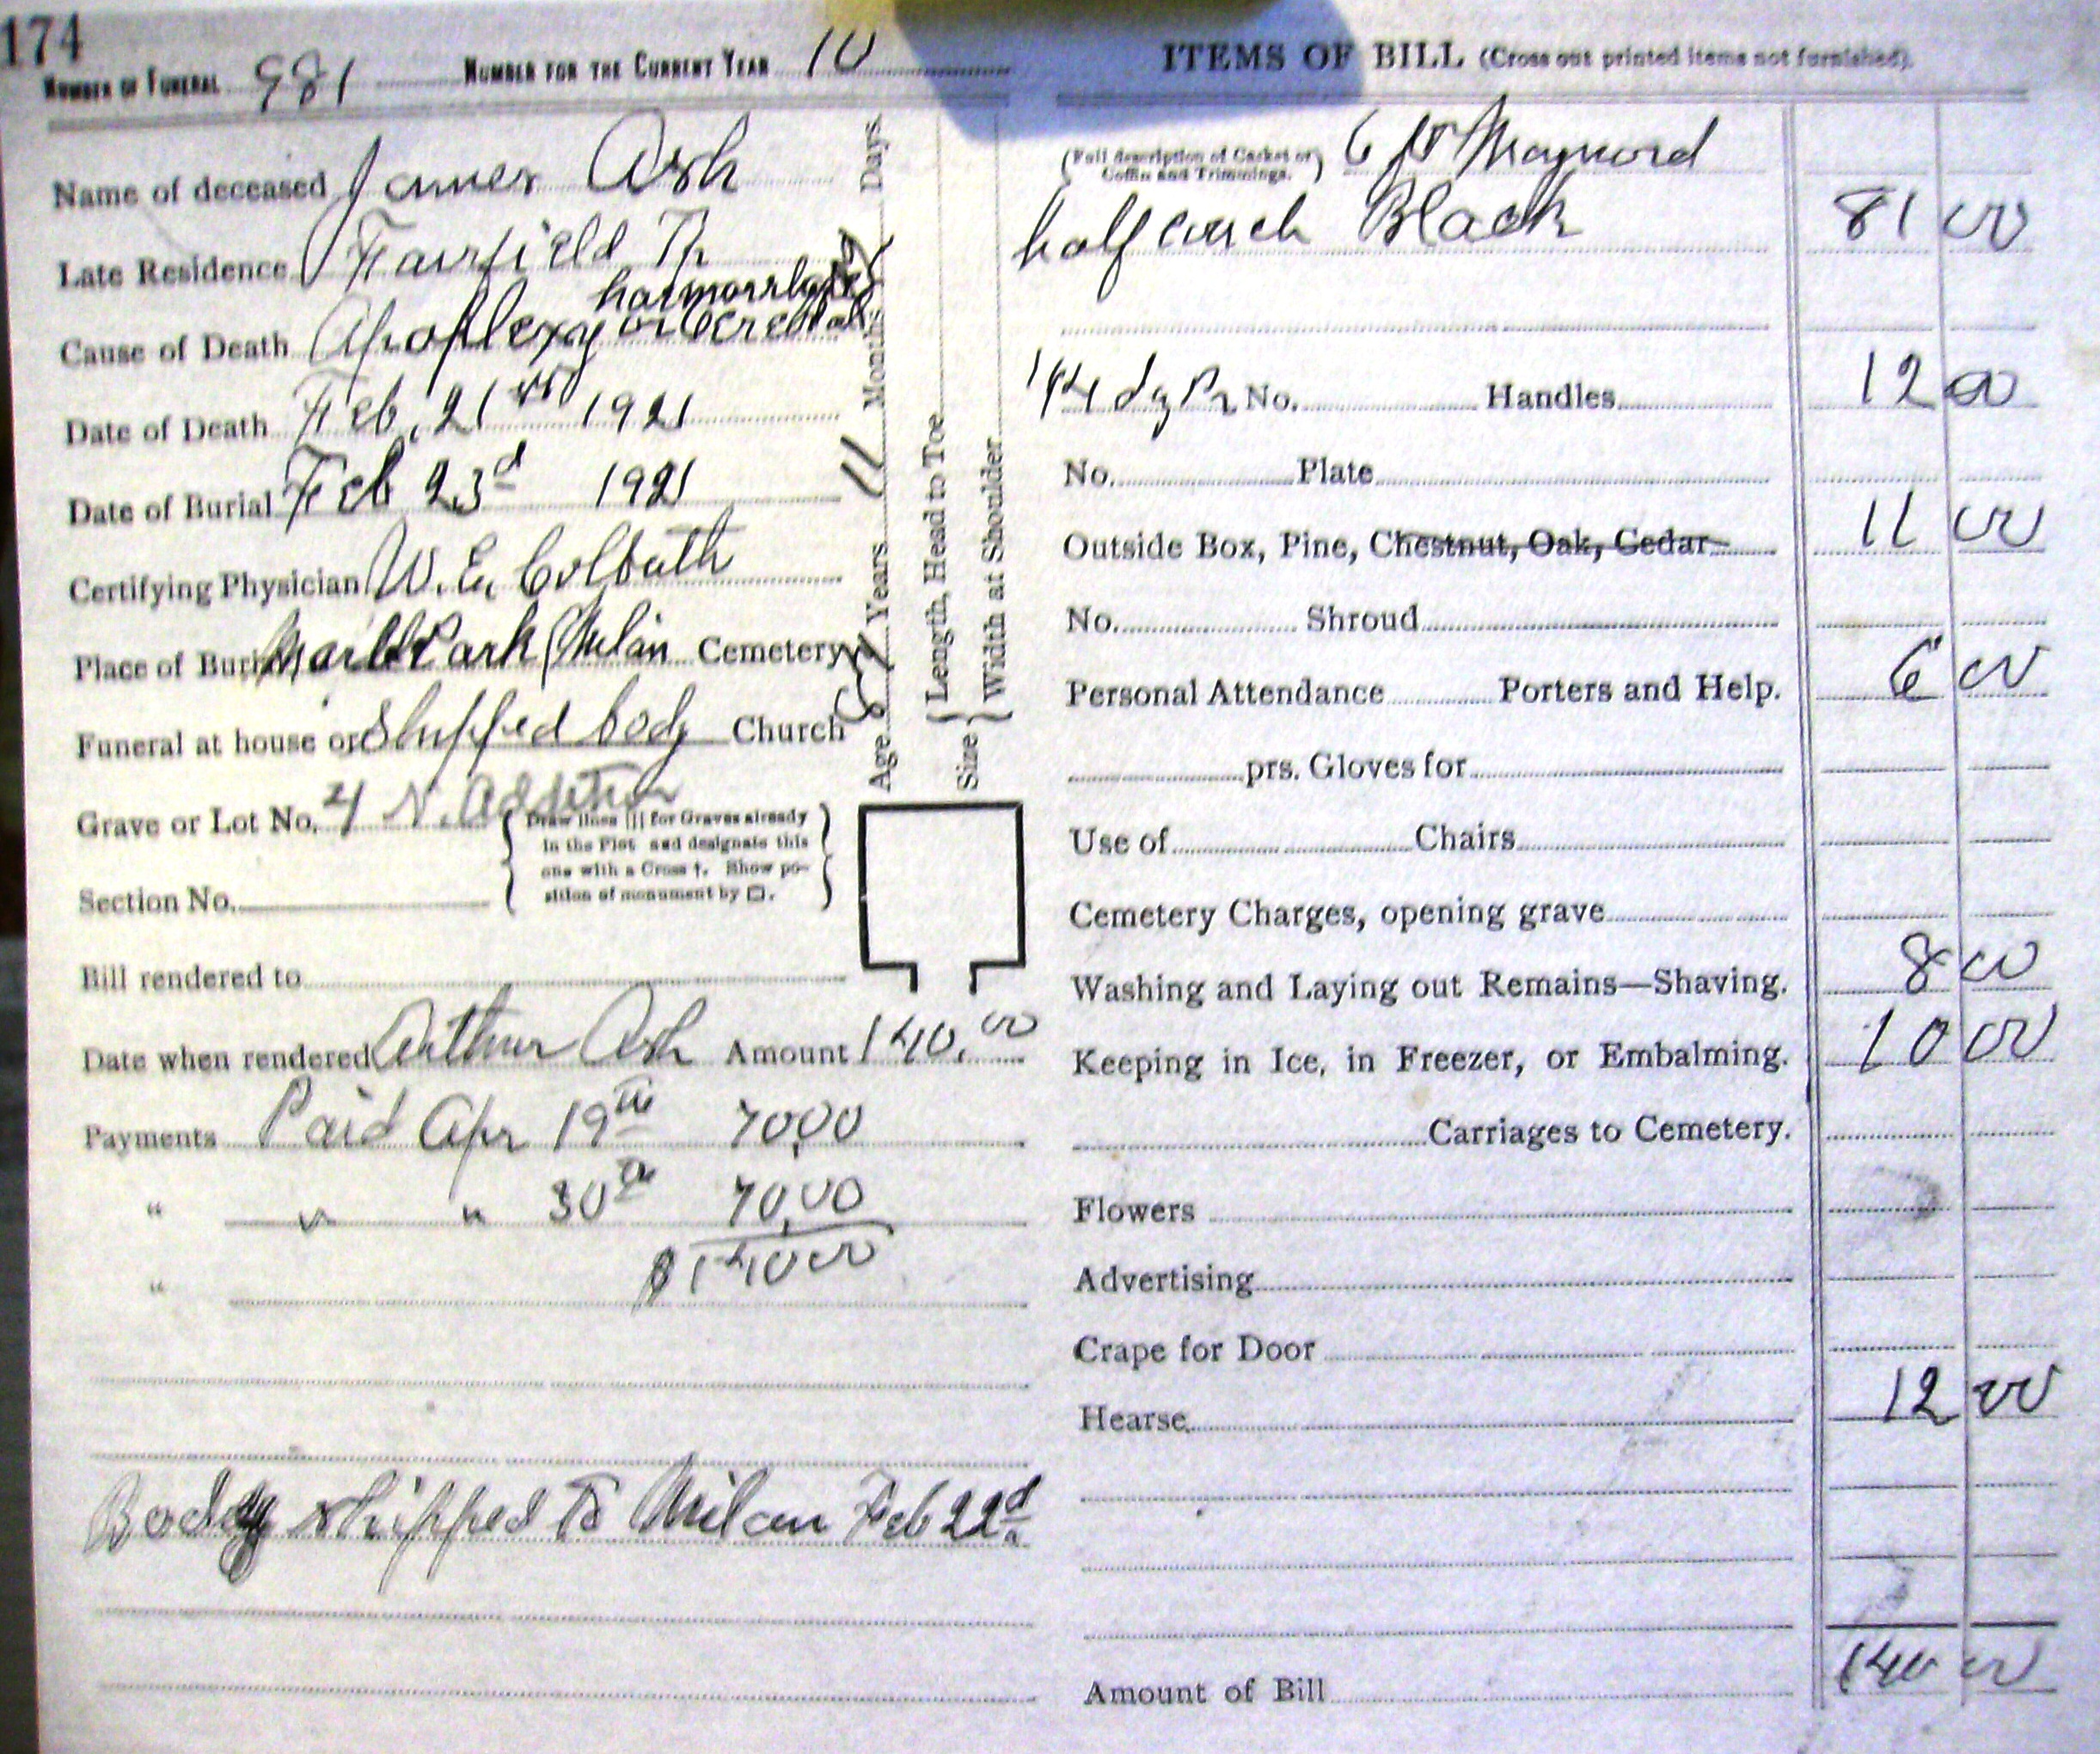 174
NUMBER OF FUNERAL 981 NUMBER FOR THE CURRENT YEAR 10
Name of deceased James Ash
Late Residence Fairfield Tp
haemorrhage
Cause of Death Apoplexy or Cerebral
Date of Death Feb. 21st 1921
Date of Burial Feb 23d 1921
Certifying Physician W. E. Colbath
Place of Burial Marble Park Milan Cemetery
Funeral at house or Shipped body Church
Grave or Lot No. 4 N. Addition
{ Draw lines ||| for Graves already
in the Plot and designate this
one with a Cross †. Show po-
sition of monument by □. }
Section No.
Bill rendered to
Date when rendered Arthur Ash Amount 140.00
Payments Paid Apr 19th 70.00
" " " 30th 70.00
" $140 00
Body shipped to Milan Feb 22d
Age Years 11 Months Days
Size { Length, Head to Toe
{ Width at Shoulder
ITEMS OF BILL (Cross out printed items not furnished).
(Full description of Casket or Coffin and Trimmings.) 6 ft Maynord
half couch Black 81 00
1/4 dz Pr No. Handles 12 00
No. Plate
Outside Box, Pine, Chestnut, Oak, Cedar 11 00
No. Shroud
Personal Attendance Porters and Help. 6 00
prs. Gloves for
Use of Chairs
Cemetery Charges, opening grave
Washing and Laying out Remains—Shaving. 8 00
Keeping in Ice, in Freezer, or Embalming. 10 00
Carriages to Cemetery.
Flowers
Advertising
Crape for Door
Hearse 12 00
Amount of Bill 140 00